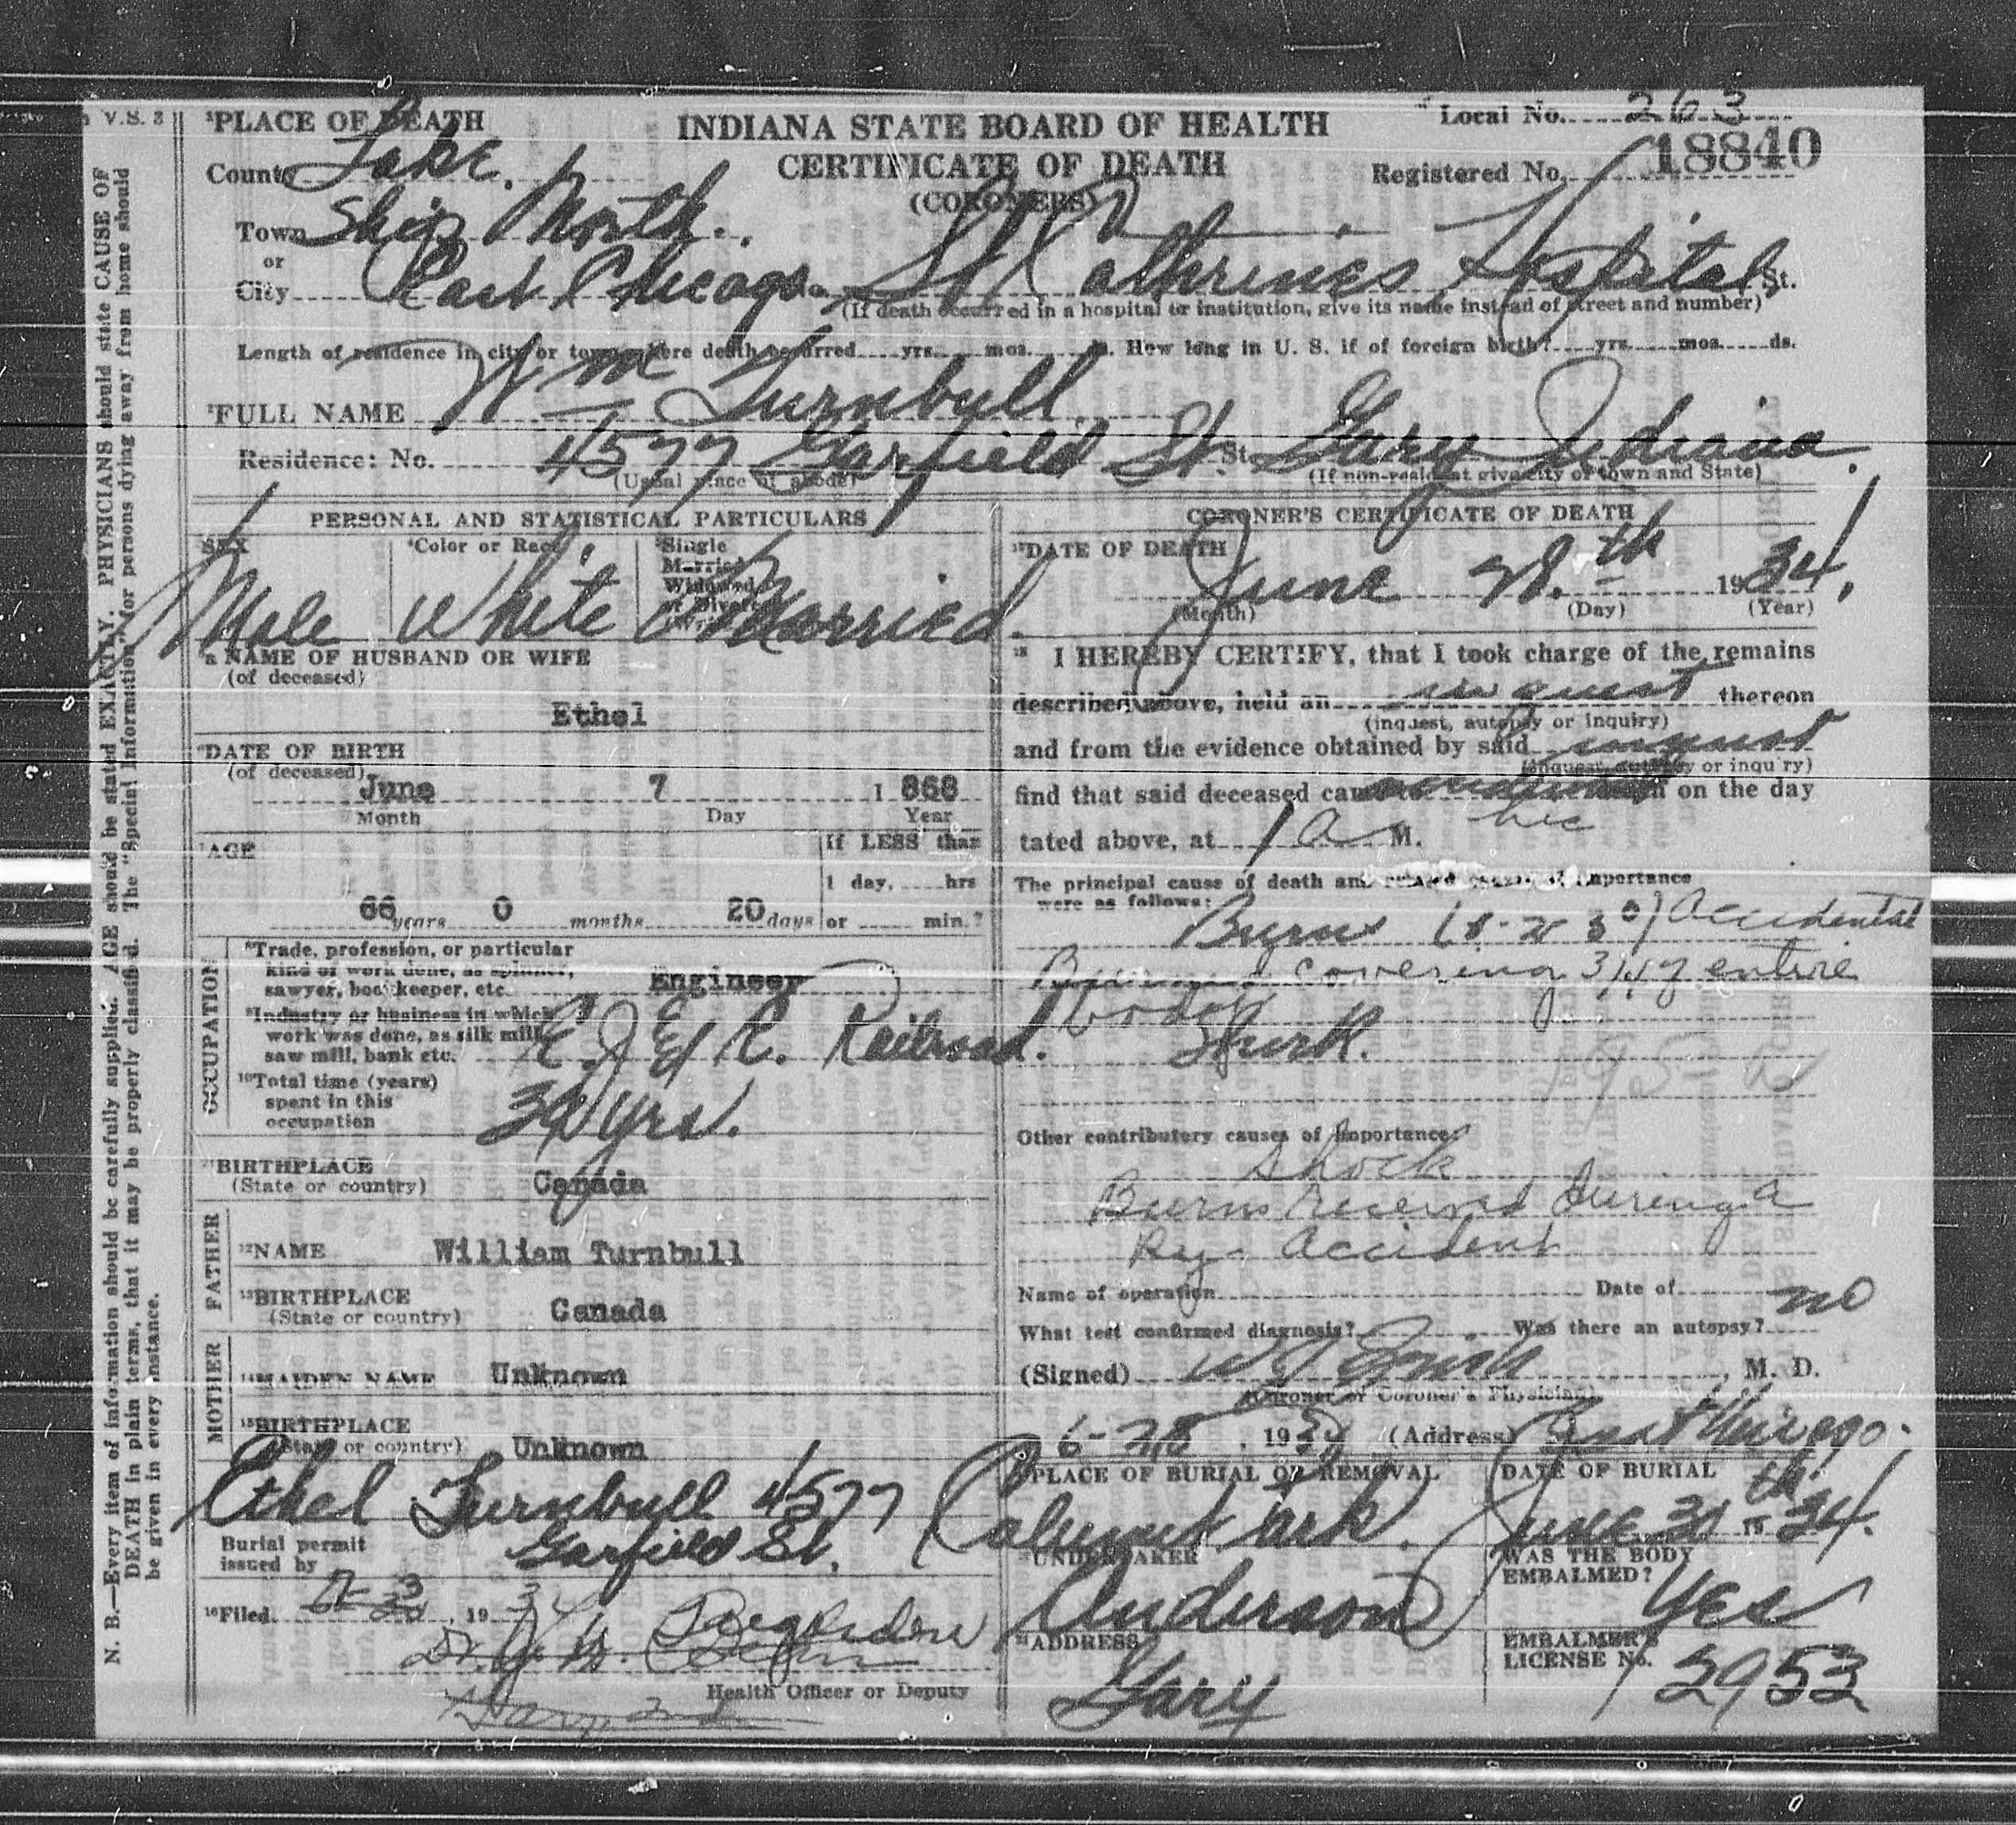 V.S. 3
PLACE OF DEATH
INDIANA STATE BOARD OF HEALTH
Local No. 263
CERTIFICATE OF DEATH
18840
County Lake.
Registered No.
(CORONERS)
Town Ship North.
or
City East Chicago No. St Cathrines Hospital, St.
(If death occurred in a hospital or institution, give its name instead of street and number)
Length of residence in city or town where death occurred yrs. mos. ds. How long in U. S. if of foreign birth? yrs. mos. ds.
FULL NAME Wm Turnbull
Residence: No. 4577 Garfield St. St. Gary Indiana.
(Usual place of abode) (If non-resident give city or town and State)
PERSONAL AND STATISTICAL PARTICULARS
SEX
Color or Race
Single
Married
Widowed
or Divorced
Male White Married.
NAME OF HUSBAND OR WIFE
(of deceased)
Ethel
DATE OF BIRTH
(of deceased)
June 7 1868
Month Day Year
AGE
If LESS than
1 day, hrs
66 years 0 months 20 days or min.?
OCCUPATION
Trade, profession, or particular
kind of work done, as spinner,
sawyer, bookkeeper, etc. Engineer
Industry or business in which
work was done, as silk mill,
saw mill, bank etc. E. J & E. Railroad.
10 Total time (years)
spent in this
occupation
yrs.
BIRTHPLACE
(State or country) Canada
FATHER
12 NAME William Turnbull
13 BIRTHPLACE
(State or country) Canada
MOTHER
MAIDEN NAME Unknown
15 BIRTHPLACE
(State or country) Unknown
Ethel Turnbull 4577
Garfield St.
Burial permit
issued by
16 Filed 19 34
Health Officer or Deputy
CORONER'S CERTIFICATE OF DEATH
DATE OF DEATH
June 28.th 1934.
(Month) (Day) (Year)
I HEREBY CERTIFY, that I took charge of the remains
described above, held an inquest thereon
(inquest, autopsy or inquiry)
and from the evidence obtained by said inquest
(inquest, autopsy or inquiry)
find that said deceased came on the day
tated above, at 1 a M.
The principal cause of death and related causes of importance
were as follows:
Burns Accidental
Burns covering 3/4 of entire
body
Other contributory causes of importance:
Shock
Burns received during a
Ry. Accident
Name of operation Date of
What test confirmed diagnosis? Was there an autopsy? no
(Signed) M. D.
(Coroner or Coroner's Physician)
6-28, 1934 (Address) East Chicago.
PLACE OF BURIAL OR REMOVAL
Calumet Park.
DATE OF BURIAL
June 30th 19 34.
UNDERTAKER
Anderson
WAS THE BODY
EMBALMED? Yes
ADDRESS
Gary
EMBALMER'S
LICENSE No. 2953
N. B.—Every item of information should be carefully supplied. AGE should be stated EXACTLY. PHYSICIANS should state CAUSE OF
DEATH in plain terms, that it may be properly classified. The "Special Information" for persons dying away from home should
be given in every instance.